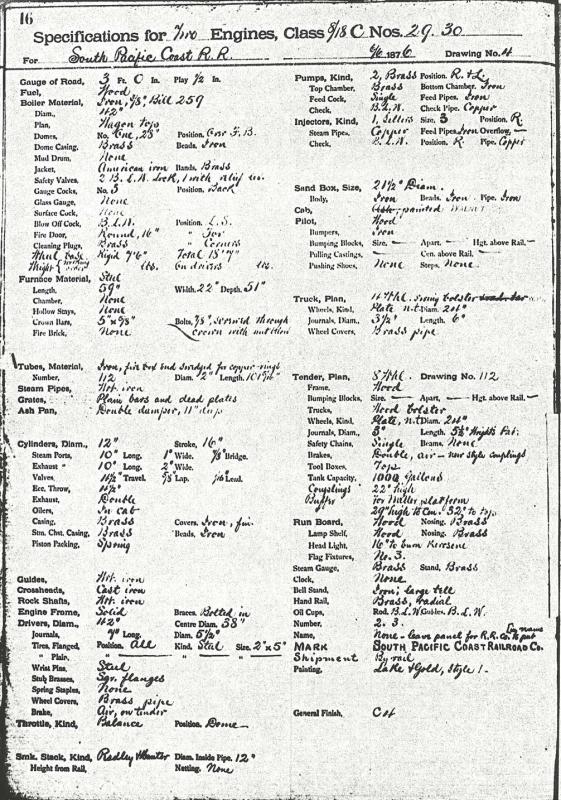 16
Specifications for Two Engines, Class 8/18 C Nos. 29. 30
For South Pacific Coast R.R. 1876 Drawing No. 4
Gauge of Road, 3 Ft. 0 In. Play 1/2 In.
Fuel, Wood
Boiler Material, Iron, 3/8" Bill 259
Diam., 42"
Plan, Wagon top
Domes, No. One, 23" Position, Over F.B.
Dome Casing, Brass Beads, Iron
Mud Drum, None
Jacket, American iron Bands, Brass
Safety Valves, 2 B.L.W. Lock, 1 with relief
Gauge Cocks, No. 3 Position, Back
Glass Gauge, None
Surface Cock, None
Blow Off Cock, B.L.W. Position, L.S.
Fire Door, Round, 16" " For
Cleaning Plugs, Brass " Corners
Wheel base Rigid 7'6" Total 18'7"
Weight lbs. On drivers lbs.
Furnace Material, Steel
Length, 59" Width, 22" Depth, 51"
Chamber, None
Hollow Stays, None
Crown Bars, 5"x5/8" Bolts, 7/8", screwed through
Fire Brick, None crown with nut
Tubes, Material, Iron, fire box end swedged for copper rings
Number, 112 Diam. 2" Length,
Steam Pipes, Wrt. iron
Grates, Plain bars and dead plates
Ash Pan, Double damper, 11" deep
Cylinders, Diam., 12" Stroke, 16"
Steam Ports, 10" Long. 1" Wide. 7/8 Bridge.
Exhaust " 10" Long. 2" Wide.
Valves, 4 1/2" Travel. 5/8 Lap. 1/16 Lead.
Ecc. Throw, 4 1/2"
Exhaust, Double
Oilers, In cab
Casing, Brass Covers, Iron, fin.
Stm. Chst. Casing, Brass Beads, Iron
Piston Packing, Spring
Guides, Wrt. iron
Crossheads, Cast iron
Rock Shafts, Wrt. iron
Engine Frame, Solid Braces, Bolted in
Drivers, Diam., 42" Centre Diam. 38"
Journals, 7" Long. Diam. 5 1/2"
Tires, Flanged, Position, All Kind, Steel Size, 2"x5"
" Plain, " " "
Wrist Pins, Steel
Stub Brasses, Sqr. flanges
Spring Staples, None
Wheel Covers, Brass pipe
Brake, Air, on tender
Throttle, Kind, Balance Position, Dome
Smk. Stack, Kind, Radley & Hunter Diam. Inside Pipe, 12"
Height from Rail, Netting, None
Pumps, Kind, 2, Brass Position, R. & L.
Top Chamber, Brass Bottom Chamber, Iron
Feed Cock, Single Feed Pipes, Iron
Check, B.L.W. Check Pipe, Copper
Injectors, Kind, 1, Sellers Size, 3 Position, R.
Steam Pipes, Copper Feed Pipes, Iron Overflow, —
Check, B.L.W. Position, R. Pipe, Copper
Sand Box, Size, 21 1/2" Diam.
Body, Iron Beads, Iron Pipe, Iron
Cab, painted WALNUT
Pilot, Wood
Bumpers, Iron
Bumping Blocks, Size, — Apart, — Hgt. above Rail, —
Pulling Castings, — Cen. above Rail, —
Pushing Shoes, None Steps, None
Truck, Plan, 4 Whl. swing bolster
Wheels, Kind, Plate n.t. Diam. 24"
Journals, Diam., 3 1/2" Length, 6"
Wheel Covers, Brass pipe
Tender, Plan, 8 Whl. Drawing No. 112
Frame, Wood
Bumping Blocks, Size, — Apart, — Hgt. above Rail, —
Trucks, Wood bolster
Wheels, Kind, Plate, n.t. Diam. 24"
Journals, Diam., 3" Length, 5 1/2" Wright's Pat.
Safety Chains, Single Beams, None
Brakes, Double, air — new style couplings
Tool Boxes, Top
Tank Capacity, 1000 Gallons
Couplings 22" high
Buffer for Miller platform
29" high to Cen. 32" to top
Run Board, Wood Nosing, Brass
Lamp Shelf, Wood Nosing, Brass
Head Light, 16" to burn Kerosene
Flag Fixtures, No. 3.
Steam Gauge, Brass Stand, Brass
Clock, None
Bell Stand, Iron; large bell
Hand Rail, Brass, radial
Oil Cups, Rod, B.L.W. Guides, B.L.W.
Number, 2. 3.
Name, None — leave panel for R.R. Co. to put on name
MARK SOUTH PACIFIC COAST RAILROAD CO.
Shipment By rail
Painting, Lake & Gold, Style 1 -
General Finish, C4